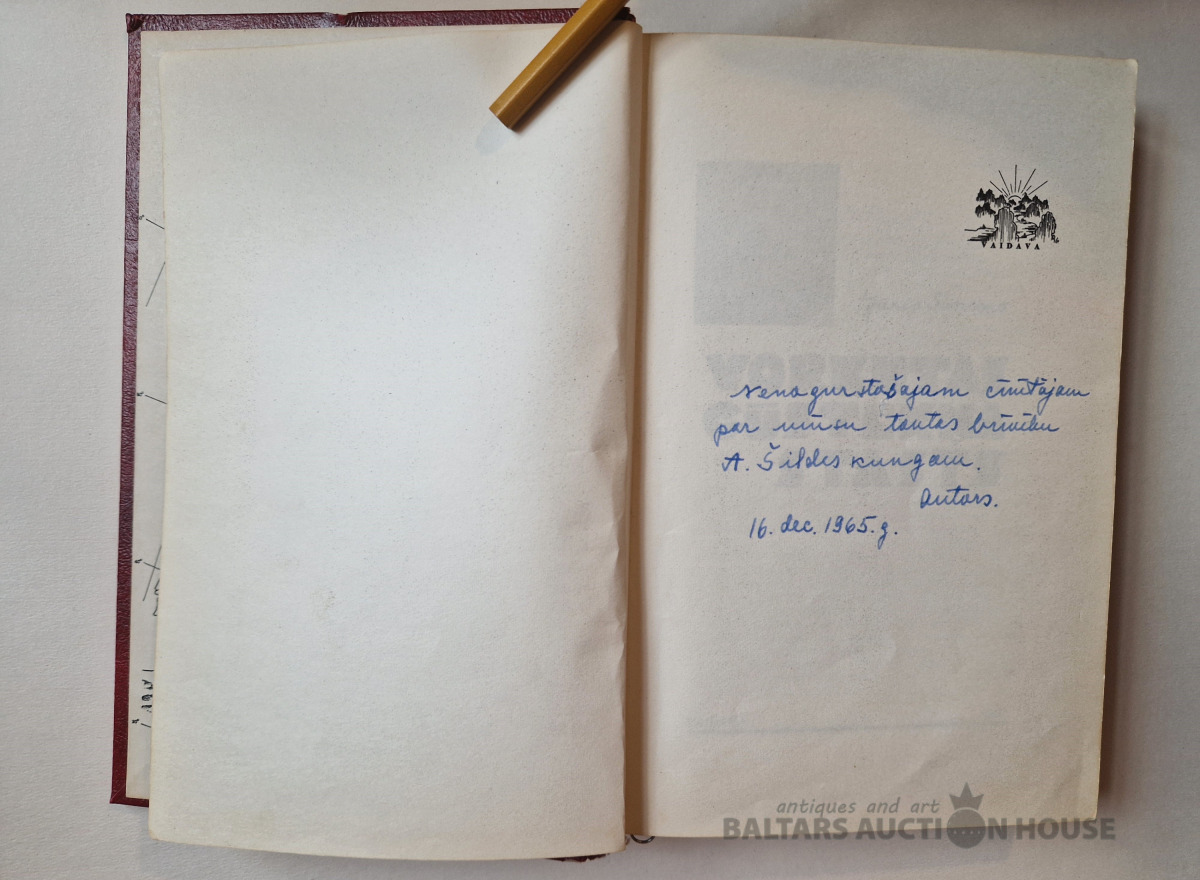 VAIDAVA
Nenogurstošajam cīnītājam
par mūsu tautas brīvību
A. Šildes kungam.
Autors.
16. dec. 1965. g.
antiques and art
BALTARS AUCTION HOUSE